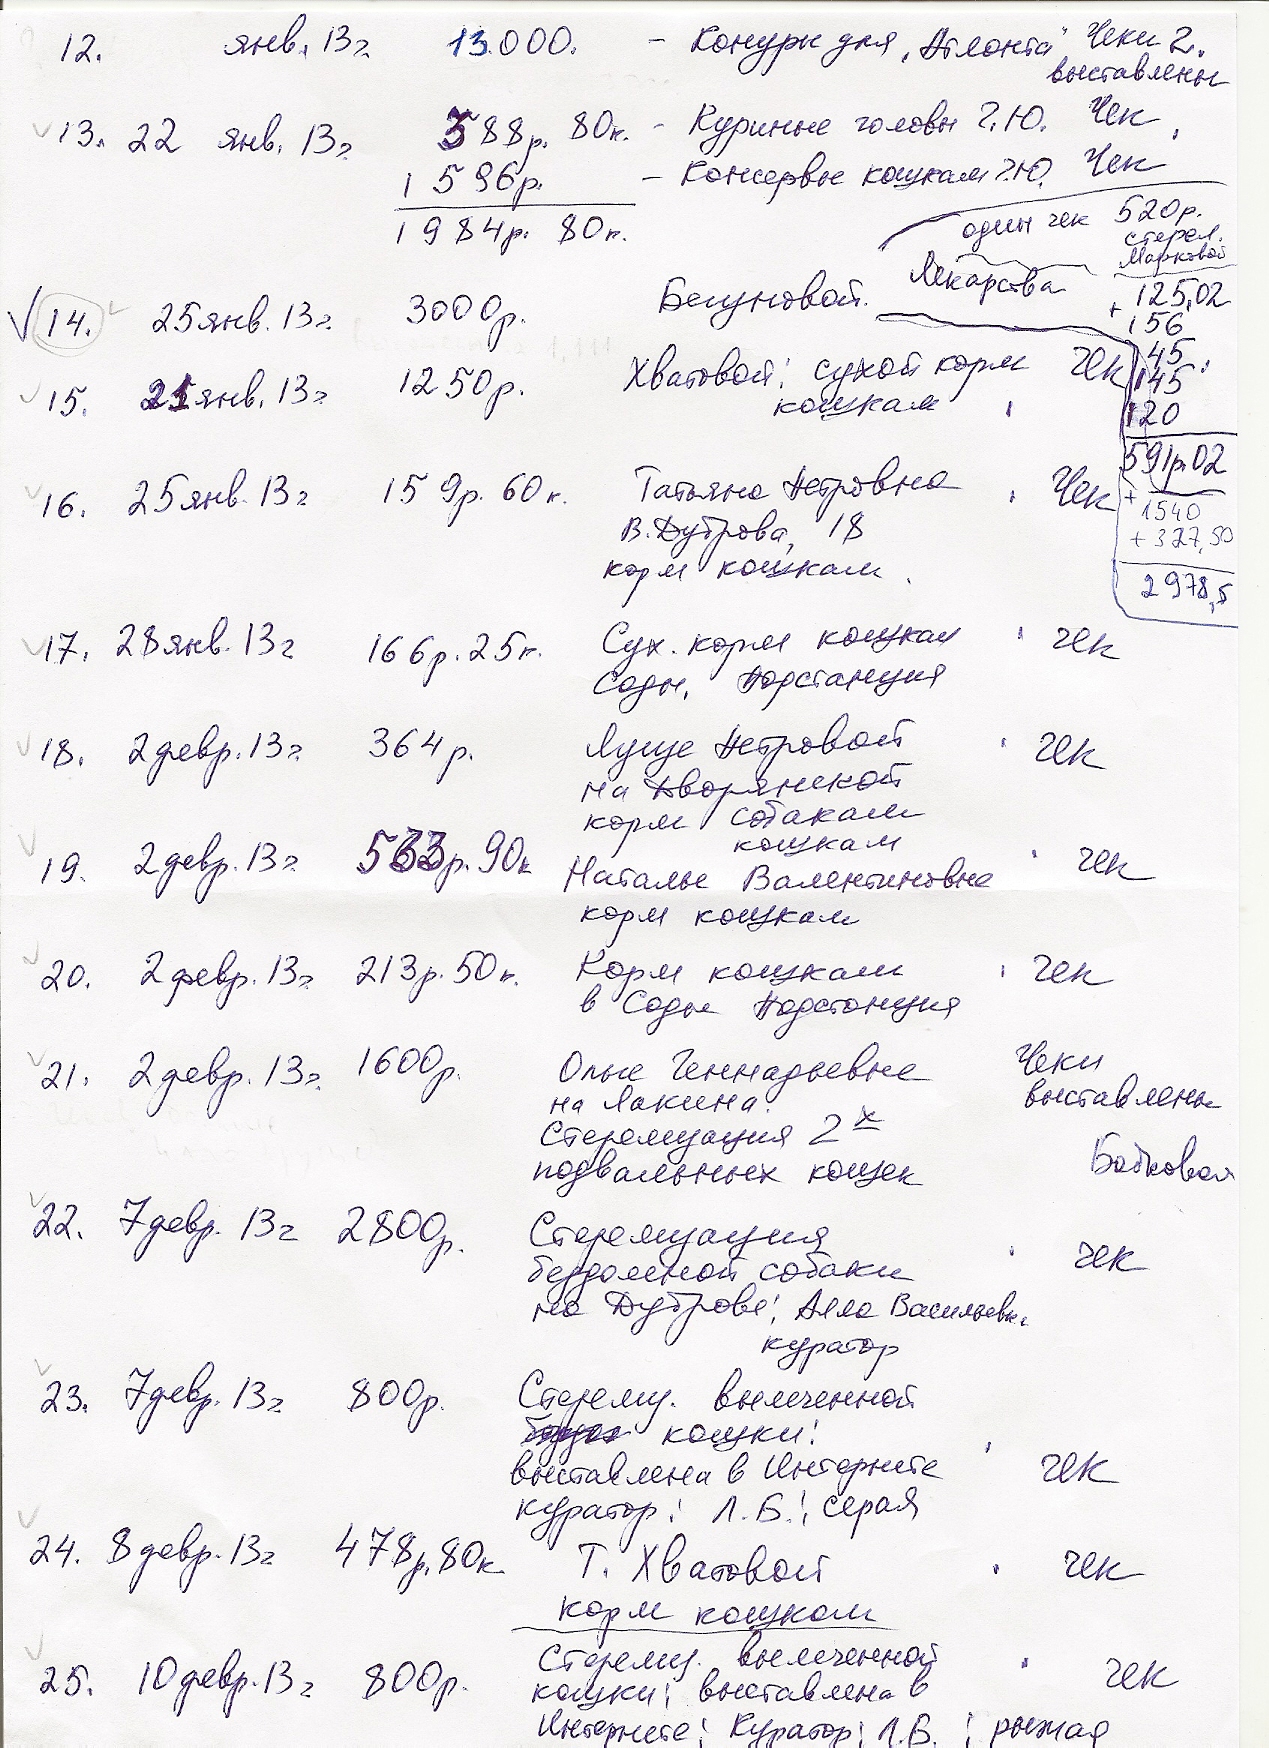 12. янв. 13г. 13.000. - Конуры для „Атланта" Чеки 2.
выставлены
13. 22 янв. 13г. 388р. 80к. - Куриные головы Г.Ю. Чек
1596р. - Консервы кошкам Г.Ю. Чек
1984р. 80к.
один чек 520р.
стерел.
Марковой
Лекарства
125,02
+ 156
45
145
120
591р.02
+ 1540
+ 327,50
2978,5
14. 25 янв. 13г. 3000р. Бегуновой.
15. 21 янв. 13г. 1250р. Хватовой: сухой корм чек
кошкам
16. 25 янв. 13г 159р. 60к. Татьяна Петровна Чек
В.Дуброва, 18
корм кошкам.
17. 28 янв. 13г 166р. 25к. Сух. корм кошкам чек
Соды, Подстанция
18. 2 февр. 13г 364р. Луизе Петровой чек
на Дворянской
корм собакам
кошкам
19. 2 февр. 13г 533р. 90к Наталье Валентиновне чек
корм кошкам
20. 2 февр. 13г 213р. 50к. Корм кошкам чек
в Соды Подстанция
21. 2 февр. 13г. 1600р. Ольге Геннадьевне Чеки
на Лакина. выставлены
Стерилизация 2х
подвальных кошек
22. 7 февр. 13г 2800р. Стерилизация чек
бездомной собаки
на Дуброве; Алла Васильевн.
куратор
23. 7 февр. 13г 800р. Стерилиз. вылеченной
кошки: чек
выставлена в Интернете
куратор: Л.Б.; серая
24. 8 февр. 13г 478р. 80к Т. Хватовой чек
корм кошкам
25. 10 февр. 13г 800р. Стерилиз. вылеченной чек
кошки; выставлена в
Интернете; Куратор: Л.Б. ; рыжая